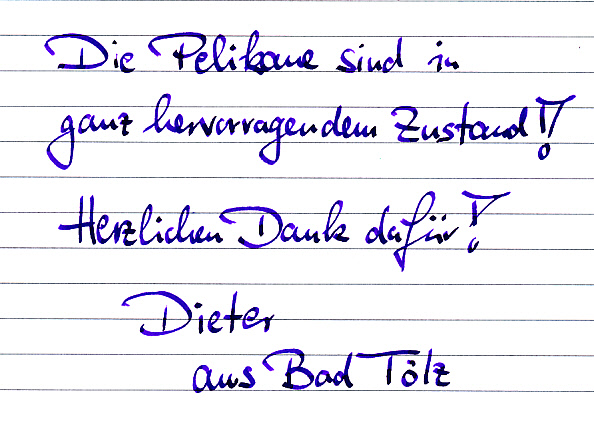 Die Pelikane sind in
ganz hervorragendem Zustand!!
Herzlichen Dank dafür!
Dieter
aus Bad Tölz